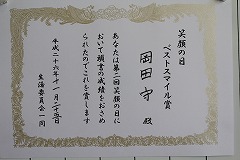 笑顔の日
ベストスマイル賞
岡田守 殿
あなたは第二回笑顔の日に
おいて頭書の成績をおさめ
られたのでこれを賞します
平成二十六年十一月二十五日
生活委員会一同